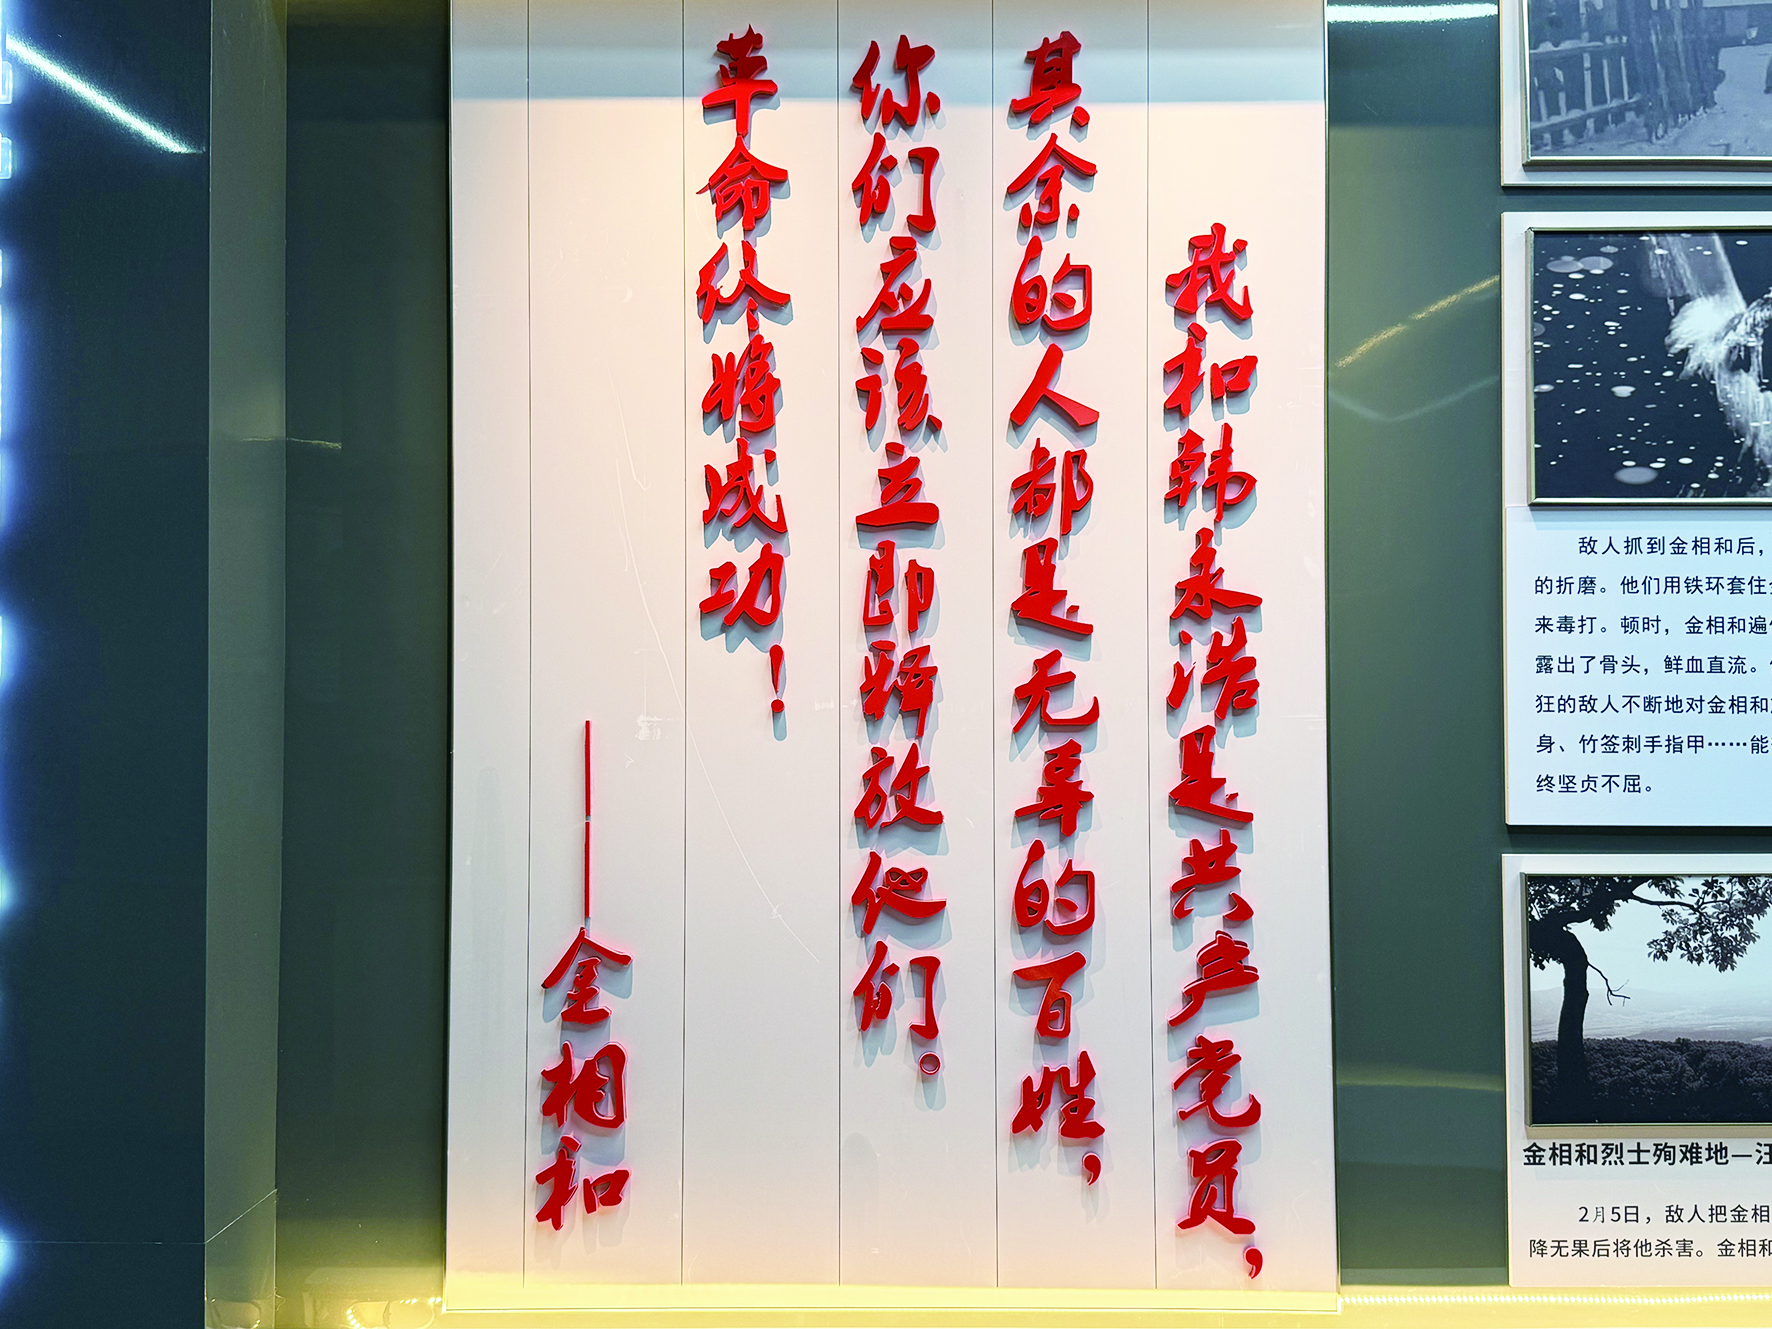 我和韩永浩是共产党员，
其余的人都是无辜的百姓，
你们应该立即释放他们。
革命终将成功！
——金相和
敌人抓到金相和后，
的折磨。他们用铁环套住
来毒打。顿时，金相和遍
露出了骨头，鲜血直流。
狂的敌人不断地对金相和
身、竹签刺手指甲……能
终坚贞不屈。
金相和烈士殉难地—汪
2月5日，敌人把金相
降无果后将他杀害。金相和